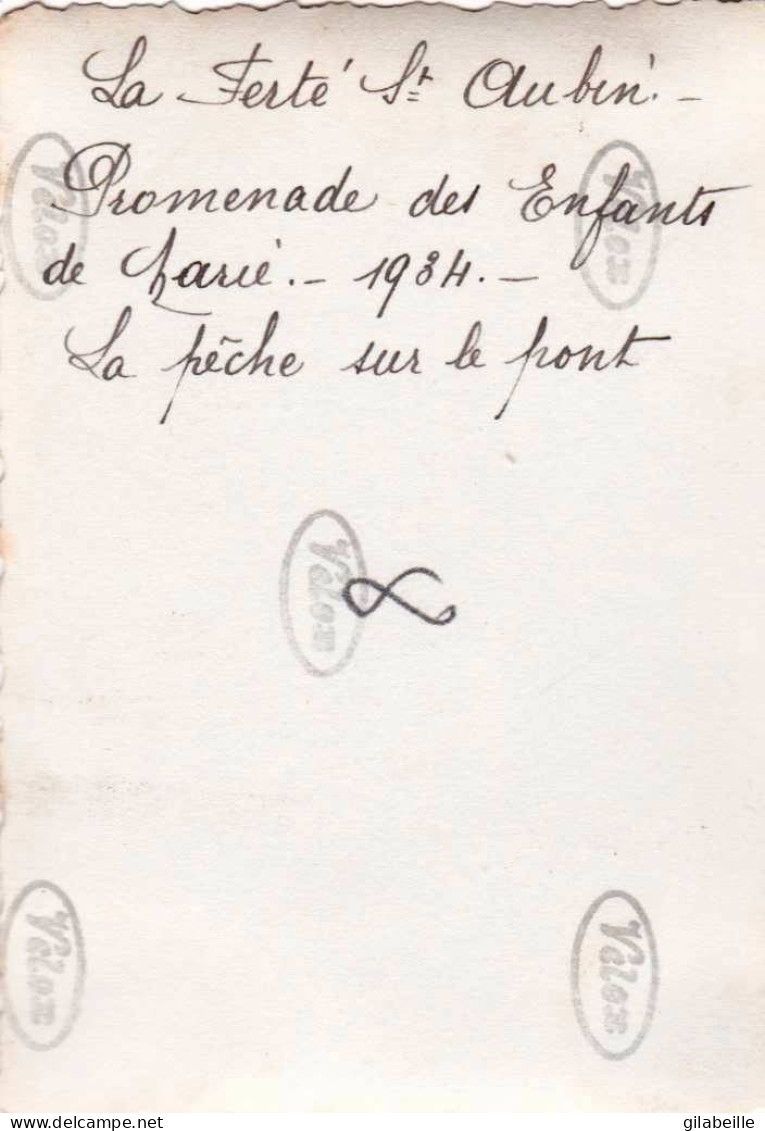 La Ferté St Aubin. -
Promenade des Enfants
de Marie. - 1934. -
La pêche sur le pont
Velox
Velox
Velox
Velox
Velox
DELCAMPE.NET
gilabeille